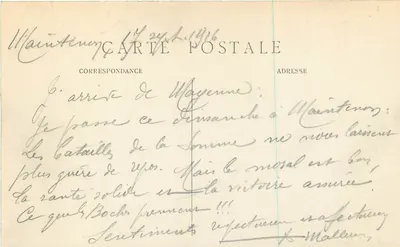 Maintenon, 17 sept. 1916
CARTE POSTALE
CORRESPONDANCE
ADRESSE
J'arrive de Mayenne:
Je passe ce dimanche à Maintenon:
Les batailles de la Somme ne nous laissent
plus guère de repos. Mais le moral est bon,
la santé solide et la victoire assurée,
Ce que Boches prennent !!!
Sentiments respectueux et affectueux